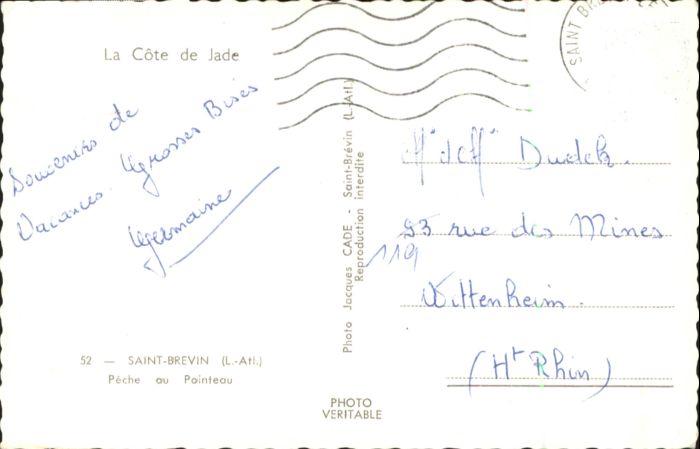 La Côte de Jade
Souvenirs de
Vacances. Grosses Bises
Germaine
52 — SAINT-BREVIN (L.-Atl.)
Pêche au Pointeau
Photo Jacques CADE - Saint-Brévin (L.-Atl.)
Reproduction interdite
PHOTO
VERITABLE
SAINT BRE
Dudek.
53 rue des Mines
119
Wittenheim.
(Ht Rhin)